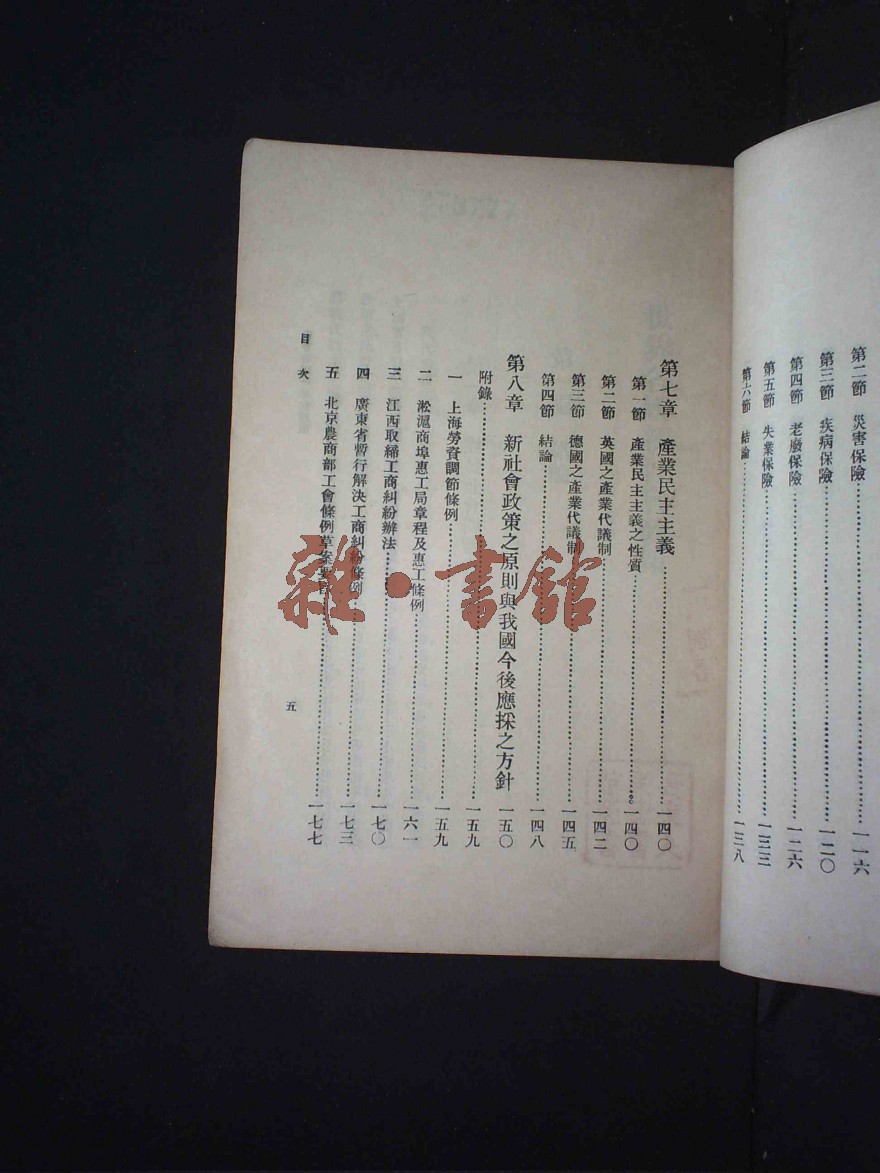 第二節 災害保險……一一六
第三節 疾病保險……一二〇
第四節 老廢保險……一二六
第五節 失業保險……一三三
第六節 結論……一三八
第七章 產業民主主義……一四〇
第一節 產業民主主義之性質……一四〇
第二節 英國之產業代議制……一四二
第三節 德國之產業代議制……一四五
第四節 結論……一四八
第八章 新社會政策之原則與我國今後應採之方針……一五〇
附錄……一五九
一 上海勞資調節條例……一五九
二 淞滬商埠惠工局章程及惠工條例……一六一
三 江西取締工商糾紛辦法……一七〇
四 廣東省暫行解決工商糾紛條例……一七三
五 北京農商部工會條例草案要旨……一七七
目次
五
雜·書館